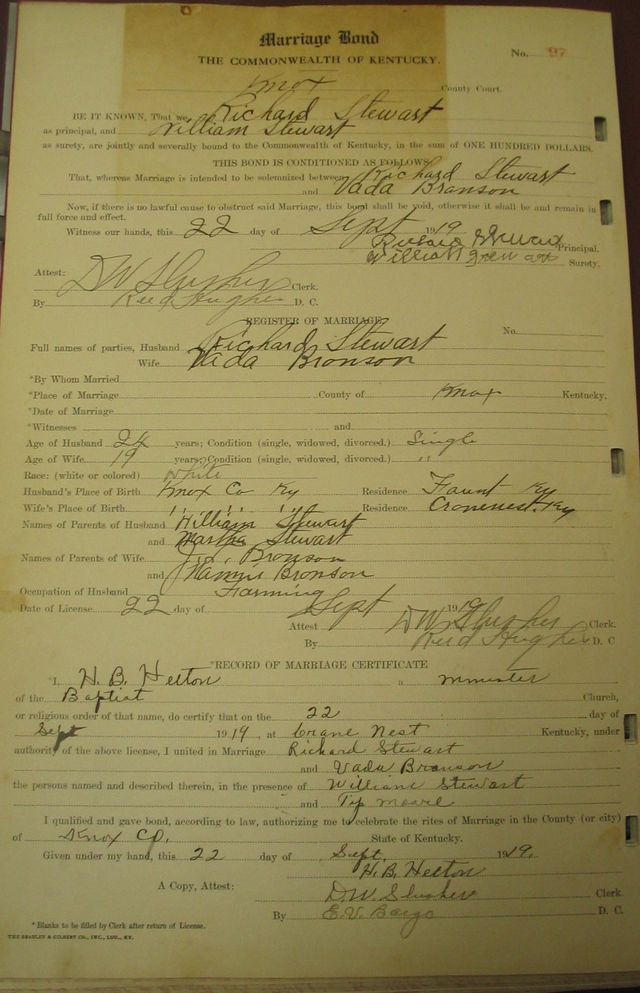 Marriage Bond
No. 97
THE COMMONWEALTH OF KENTUCKY.
Knox County Court.
BE IT KNOWN, That we Richard Stewart
as principal, and William Stewart
as surety, are jointly and severally bound to the Commonwealth of Kentucky, in the sum of ONE HUNDRED DOLLARS.
THIS BOND IS CONDITIONED AS FOLLOWS:
That, whereas Marriage is intended to be solemnized between Richard Stewart
and Vada Branson
Now, if there is no lawful cause to obstruct said Marriage, this bond shall be void, otherwise it shall be and remain in
full force and effect.
Witness our hands, this 22 day of Sept 1919
Richard Stewart Principal.
William Stewart Surety.
Attest: D W Slusher Clerk.
By Reed Hughes D. C.
REGISTER OF MARRIAGE
No.
Full names of parties, Husband Richard Stewart
Wife Vada Bronson
*By Whom Married
*Place of Marriage County of Knox Kentucky,
*Date of Marriage
*Witnesses and
Age of Husband 24 years; Condition (single, widowed, divorced.) Single
Age of Wife 19 years; Condition (single, widowed, divorced.) "
Race: (white or colored) White
Husband's Place of Birth Knox Co Ky Residence Faunt Ky
Wife's Place of Birth " " " Residence Cranenest, Ky
Names of Parents of Husband William Stewart
and Martha Stewart
Names of Parents of Wife Bronson
and Bronson
Occupation of Husband Farming
Date of License 22 day of Sept 1919
Attest D W Slusher Clerk.
By Reed Hughes D. C
*RECORD OF MARRIAGE CERTIFICATE
*I, H. B. Helton a minister
of the Baptist Church,
or religious order of that name, do certify that on the 22 day of
Sept 1919, at Crane Nest Kentucky, under
authority of the above license, I united in Marriage Richard Stewart
and Vada Branson
the persons named and described therein, in the presence of William Stewart
and Tip Moore
I qualified and gave bond, according to law, authorizing me to celebrate the rites of Marriage in the County (or city)
of Knox Co. State of Kentucky.
Given under my hand, this 22 day of Sept. 1919.
H. B. Helton
A Copy, Attest: D. W. Slusher Clerk
By E. V. Bargo D. C.
*Blanks to be filled by Clerk after return of License.
THE BRADLEY & GILBERT CO., INC., LOU., KY.